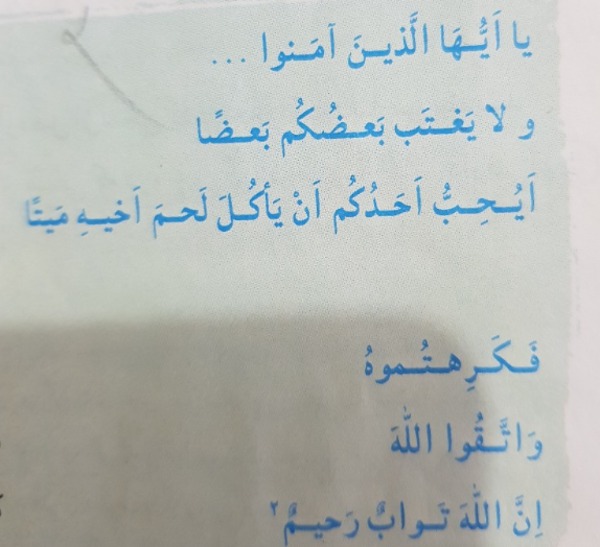 یا اَیُّهَا الَّذینَ آمَنوا ...
و لا یَغتَب بَعضُکُم بَعضًا
اَیُحِبُّ اَحَدُکُم اَنْ یَأکُلَ لَحمَ اَخیهِ مَیتًا
فَکَرِهتُموهُ
وَاتَّقُوا اللّٰهَ
اِنَّ اللّٰهَ تَوابٌ رَحیمٌ ۲